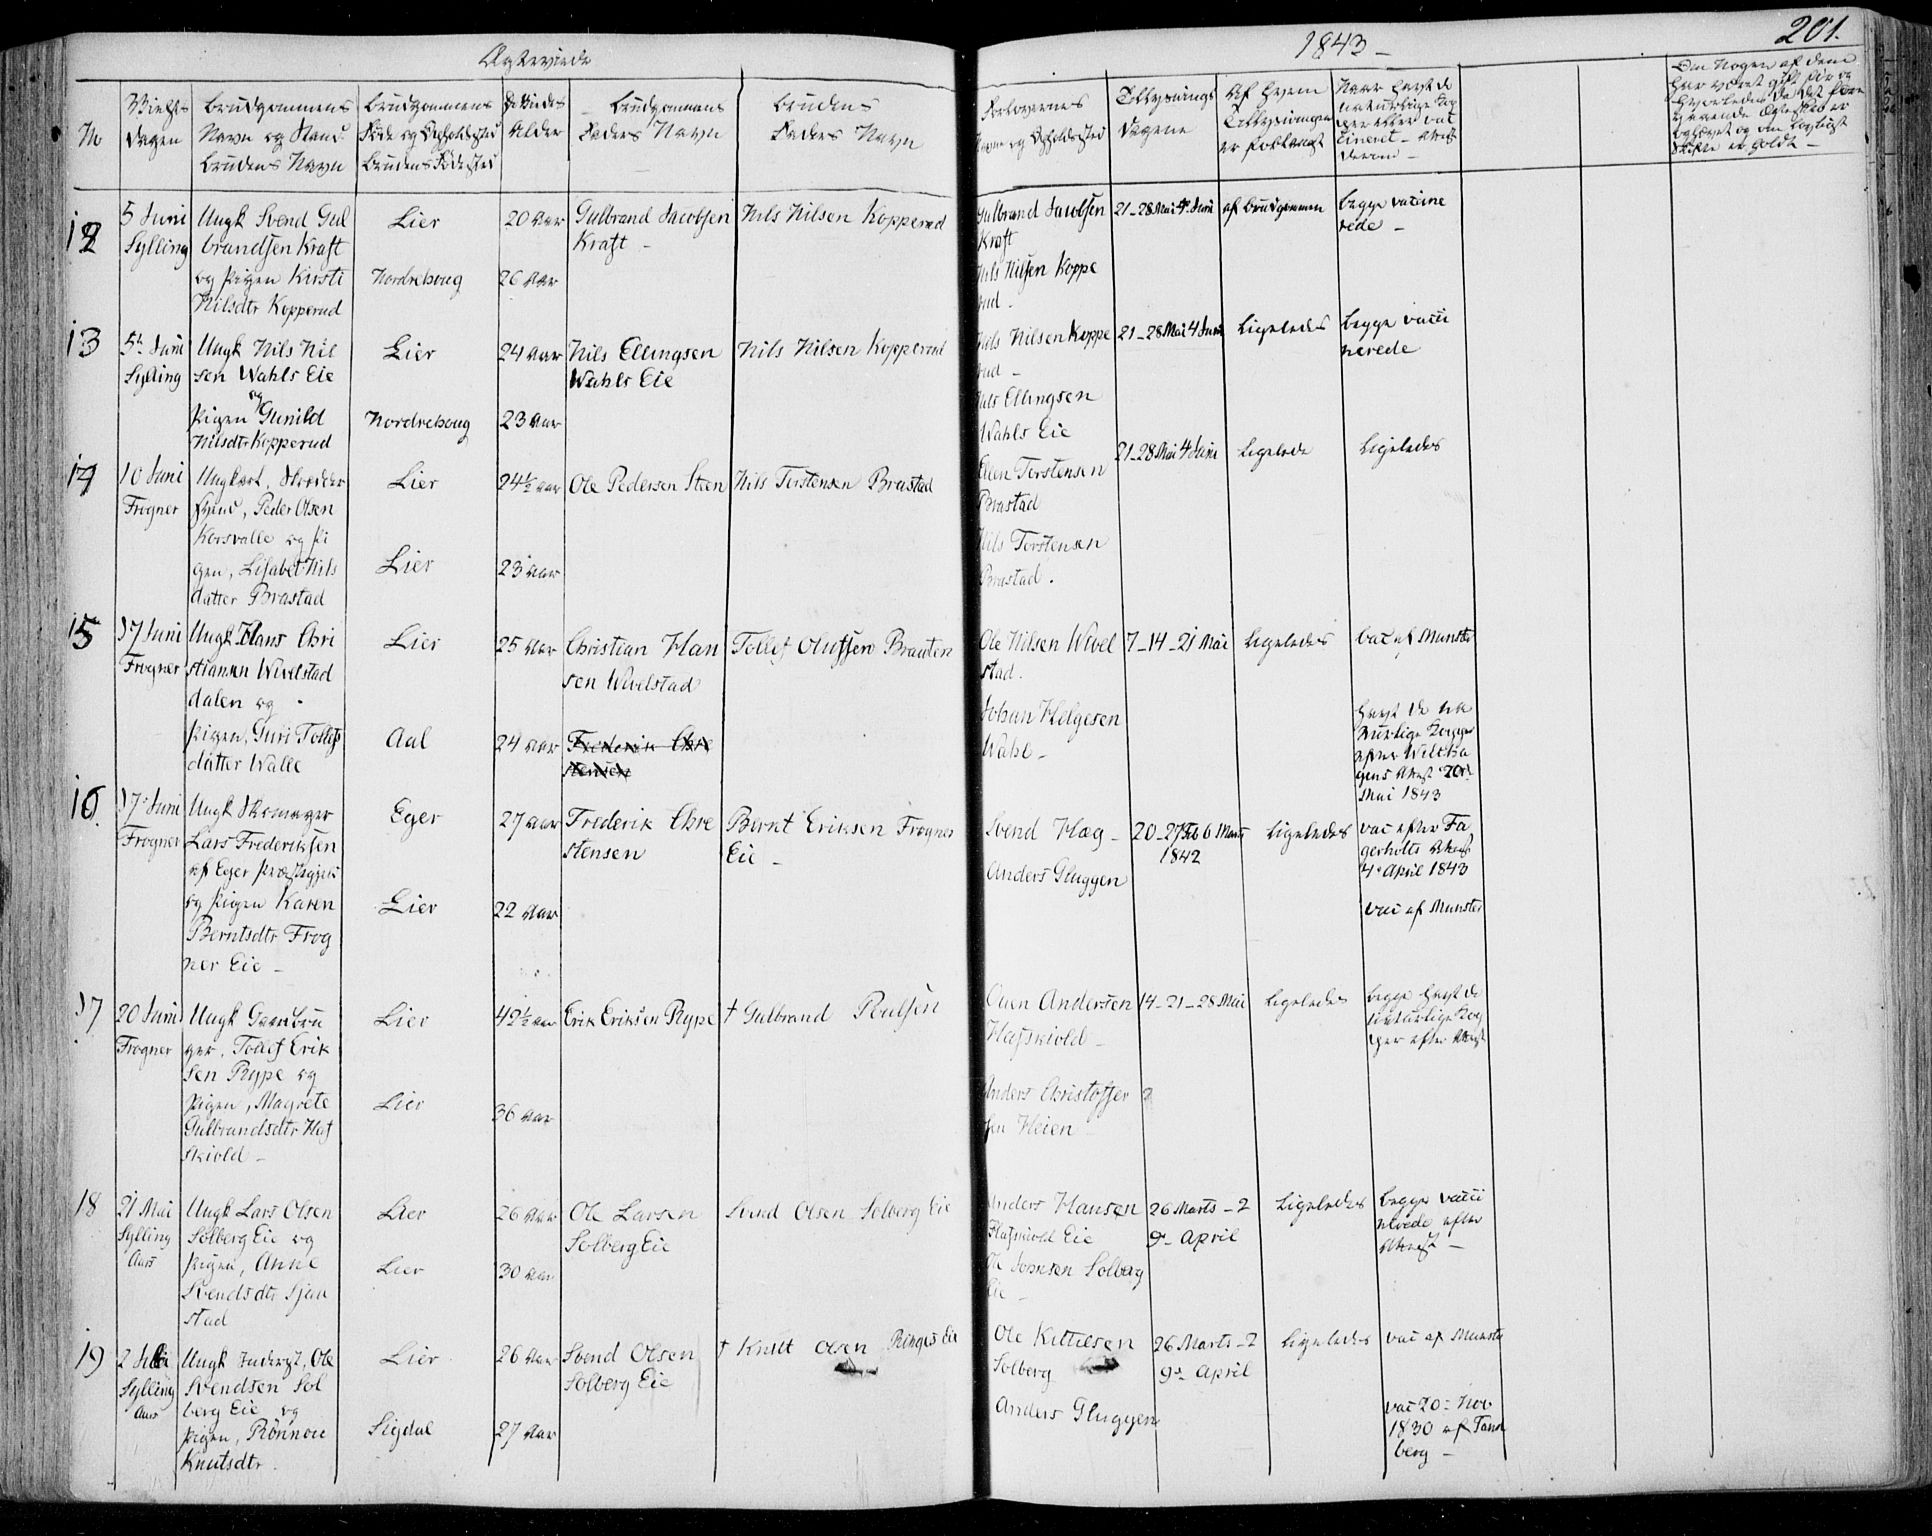 Ægteviede
1843 –
201.
No
Vielses
Dagen
Brudgommens
Navn og Stand
Brudens Navn
Brudgommens
Føde og Opholdssted
Brudens Fødested
Alder
Brudgommens
Faders Navn
Brudens
Faders Navn
Forlovernes
Navn og Opholdssted
Tillysnings
Dagene
Af Hvem
Tillysningen
er forlangt
Naar havt de
naturlige Kop
per eller vac
cineret – Attest
derom –
Om Nogen af dem
har været gift før og
hvorledes da det fore
gaaende Ægteskab er
ophævet og om lovligt
Skifte er holdt –
12
5 Juni
Sylling
Ungk Svend Gul
brandsen Kraft
og Pigen Kirsti
Nilsdtr Kopperud
Lier
Nordrehoug
20 Aar
26 Aar
Gulbrand Jacobsen
Kraft –
Nils Nilsen Kopperud
Gulbrand Jacobsen
Kraft
Nils Nilsen Koppe
rud –
21–28 Mai 4 Juni
af Brudgommen
begge vaccine
rede –
13
5te Juni
Sylling
Ungk Nils Nil
sen Wahls Eie
og
Pigen Gunild
Nilsdtr Kopperud
Lier
Nordrehoug
24 Aar
23 Aar
Nils Ellingsen
Wahls Eie
Nils Nilsen Kopperud
Nils Nilsen Koppe
rud –
Nils Ellingsen
Wahls Eie
21–28 Mai 4 Juni
Ligeledes
begge vacci
nerede
14
10 Juni
Frogner
Ungkarl, Skrædder
Svend, Peder Olsen
Korsvalle og Pi
gen, Lisabet Nils
datter Brastad
Lier
Lier
24½ Aar
23 Aar
Ole Pedersen Steen
Nils Torstensen Brastad
Elen Torstensen
Brastad
Nils Torstensen
Brastad.
21–28 Mai 4 Juni
Ligelede
Ligeledes
15
17 Juni
Frogner
Ungk Hans Chri
stiansen Wivelstad
dalen og
Pigen, Guri Tollefs
datter Walle
Lier
Aal
25 Aar
24 Aar
Christian Han
sen Wivelstad
Frederik Chre
stensen
Tollef Olufsen Brauten
Ole Nilsen Wivel
stad.
Johan Helgesen
Wahl –
7–14–21 Mai
Ligeledes
vac af Munster
Havt de na
turlige Kopper
efter Wiltha
gens Attest 20de
Mai 1843
16.
17de Juni
Frogner
Ungk Skomager
Lars Frederiksen
af Eger Præstegjeld
og Pigen Karen
Berntsdtr Frog
ner Eie –
Eger
Lier
27 Aar
22 Aar
Frederik Chre
stensen
Bernt Eriksen Frogner
Eie –
Svend Hæg –
Anders Gluggen
20–27 Feb 6 Marts
1842
Ligeledes
vac efter Fa
gerholts Attest
4de April 1843
vac af Munster
17
20 Juni
Frogner
Ungk Gaardbru
ger, Tollef Erik
sen Rype og
Pigen, Magrete
Gulbrandsdtr Haf
skiold –
Lier
Lier
42½ Aar
36 Aar
Erik Eriksen Rype
† Gulbrand Paulsen
Auen Andersen
Hafskiold –
Anders Christoffer
sen Heien –
14–21–28 Mai
Ligeledes
begge havt de
naturlige Kop
per efter Attest
18
21 Mai
Sylling
Aars
Ungk Lars Olsen
Solberg Eie og
Pigen, Anne
Svendsdtr Sjaa
stad
Lier
Lier
26 Aar
30 Aar
Ole Larsen
Solberg Eie
Svend Olsen Solberg Eie
Anders Hansen
Hafskiold Eie
Ole Johnsen Solberg
Eie –
26 Marts – 2
9de April
Ligeledes
begge vacci
nerede efter
Attest –
19
2 Juli
Sylling
Aars
Ungk Inderst, Ole
Svendsen Sol
berg Eie og
Pigen, Rønnou
Knutsdtr.
Lier
Sigdal
26 Aar
27 Aar
Svend Olsen
Solberg Eie
† Knut Olsen Ringes Eie
Ole Kittilsen
Solberg
Anders Gluggen
26 Marts – 2
9de April
Ligeledes
vac af Munster
vac 20de Nov
1830 af Tand
berg –